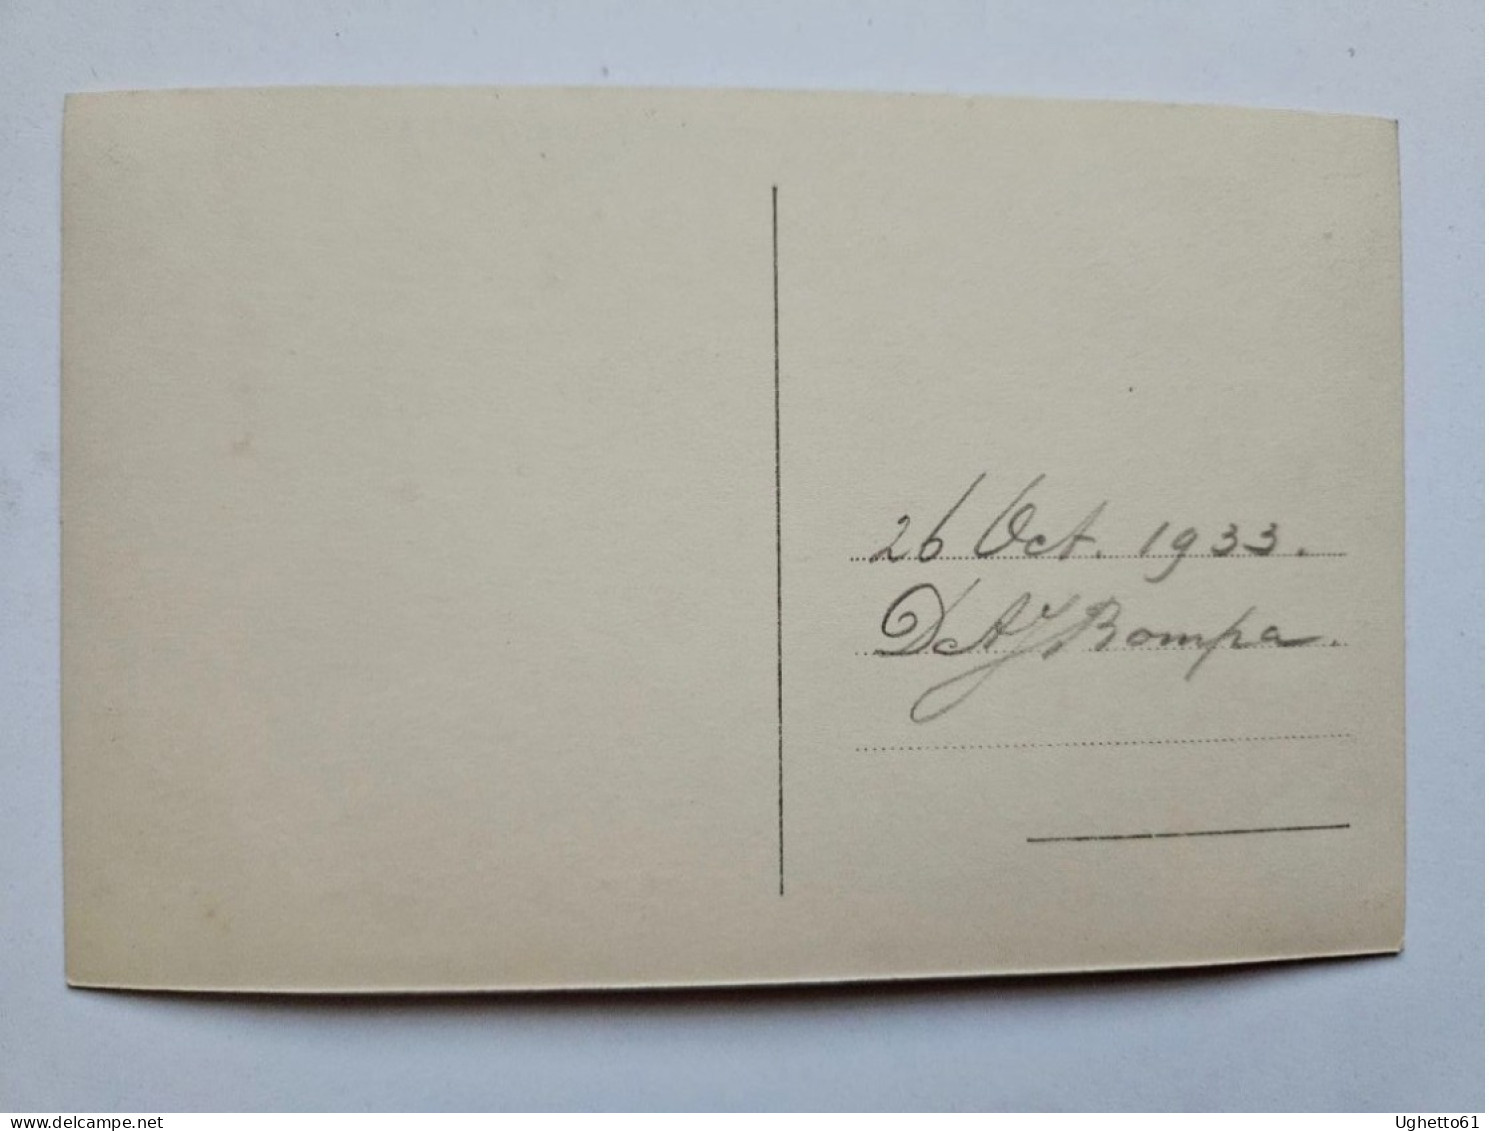 26 Oct. 1933.
D.A.J. Bompa.
www.delcampe.net
Ughetto61